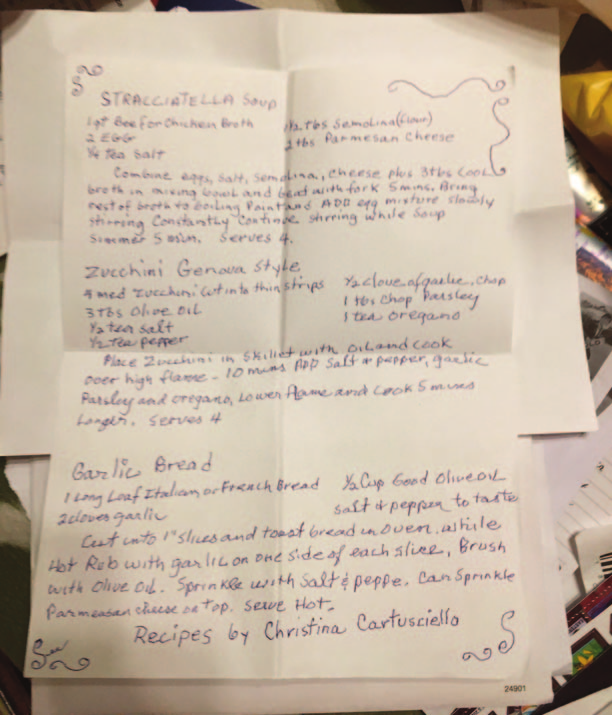 STRACCIATELLA Soup
1 qt Beef or Chicken Broth 1/2 Tbs Semolina (flour)
2 EGG 2 tbs Parmesan Cheese
1/4 tea Salt
Combine eggs, Salt, Semolina, cheese plus 3 tbs Cool
broth in mixing bowl and beat with fork 5 mins. Bring
rest of broth to boiling Point and ADD egg mixture slowly
stirring Constantly Continue stirring while Soup
Simmer 5 min. Serves 4.
Zucchini Genova Style
med Zucchini cut into thin strips 1/2 clove of garlic, chop
3 Tbs Olive Oil 1 tbs Chop Parsley
1/2 tea Salt 1 tea Oregano
1/2 Tea pepper
Place Zucchini in Skillet with Oil and Cook
over high flame - 10 mins ADD Salt & pepper, garlic
Parsley and oregano, Lower flame and Cook 5 mins
Longer. Serves 4
Garlic Bread
1 Long Loaf Italian or French Bread 1/2 Cup Good Olive Oil
2 cloves garlic salt & pepper to taste
Cut into 1" slices and toast bread in oven. while
Hot Rub with garlic on one side of each slice, Brush
with Olive Oil. Sprinkle with Salt & peppe. Can Sprinkle
Parmeasan cheese on top. Serve Hot.
Recipes by Christina Cartusciello
24901